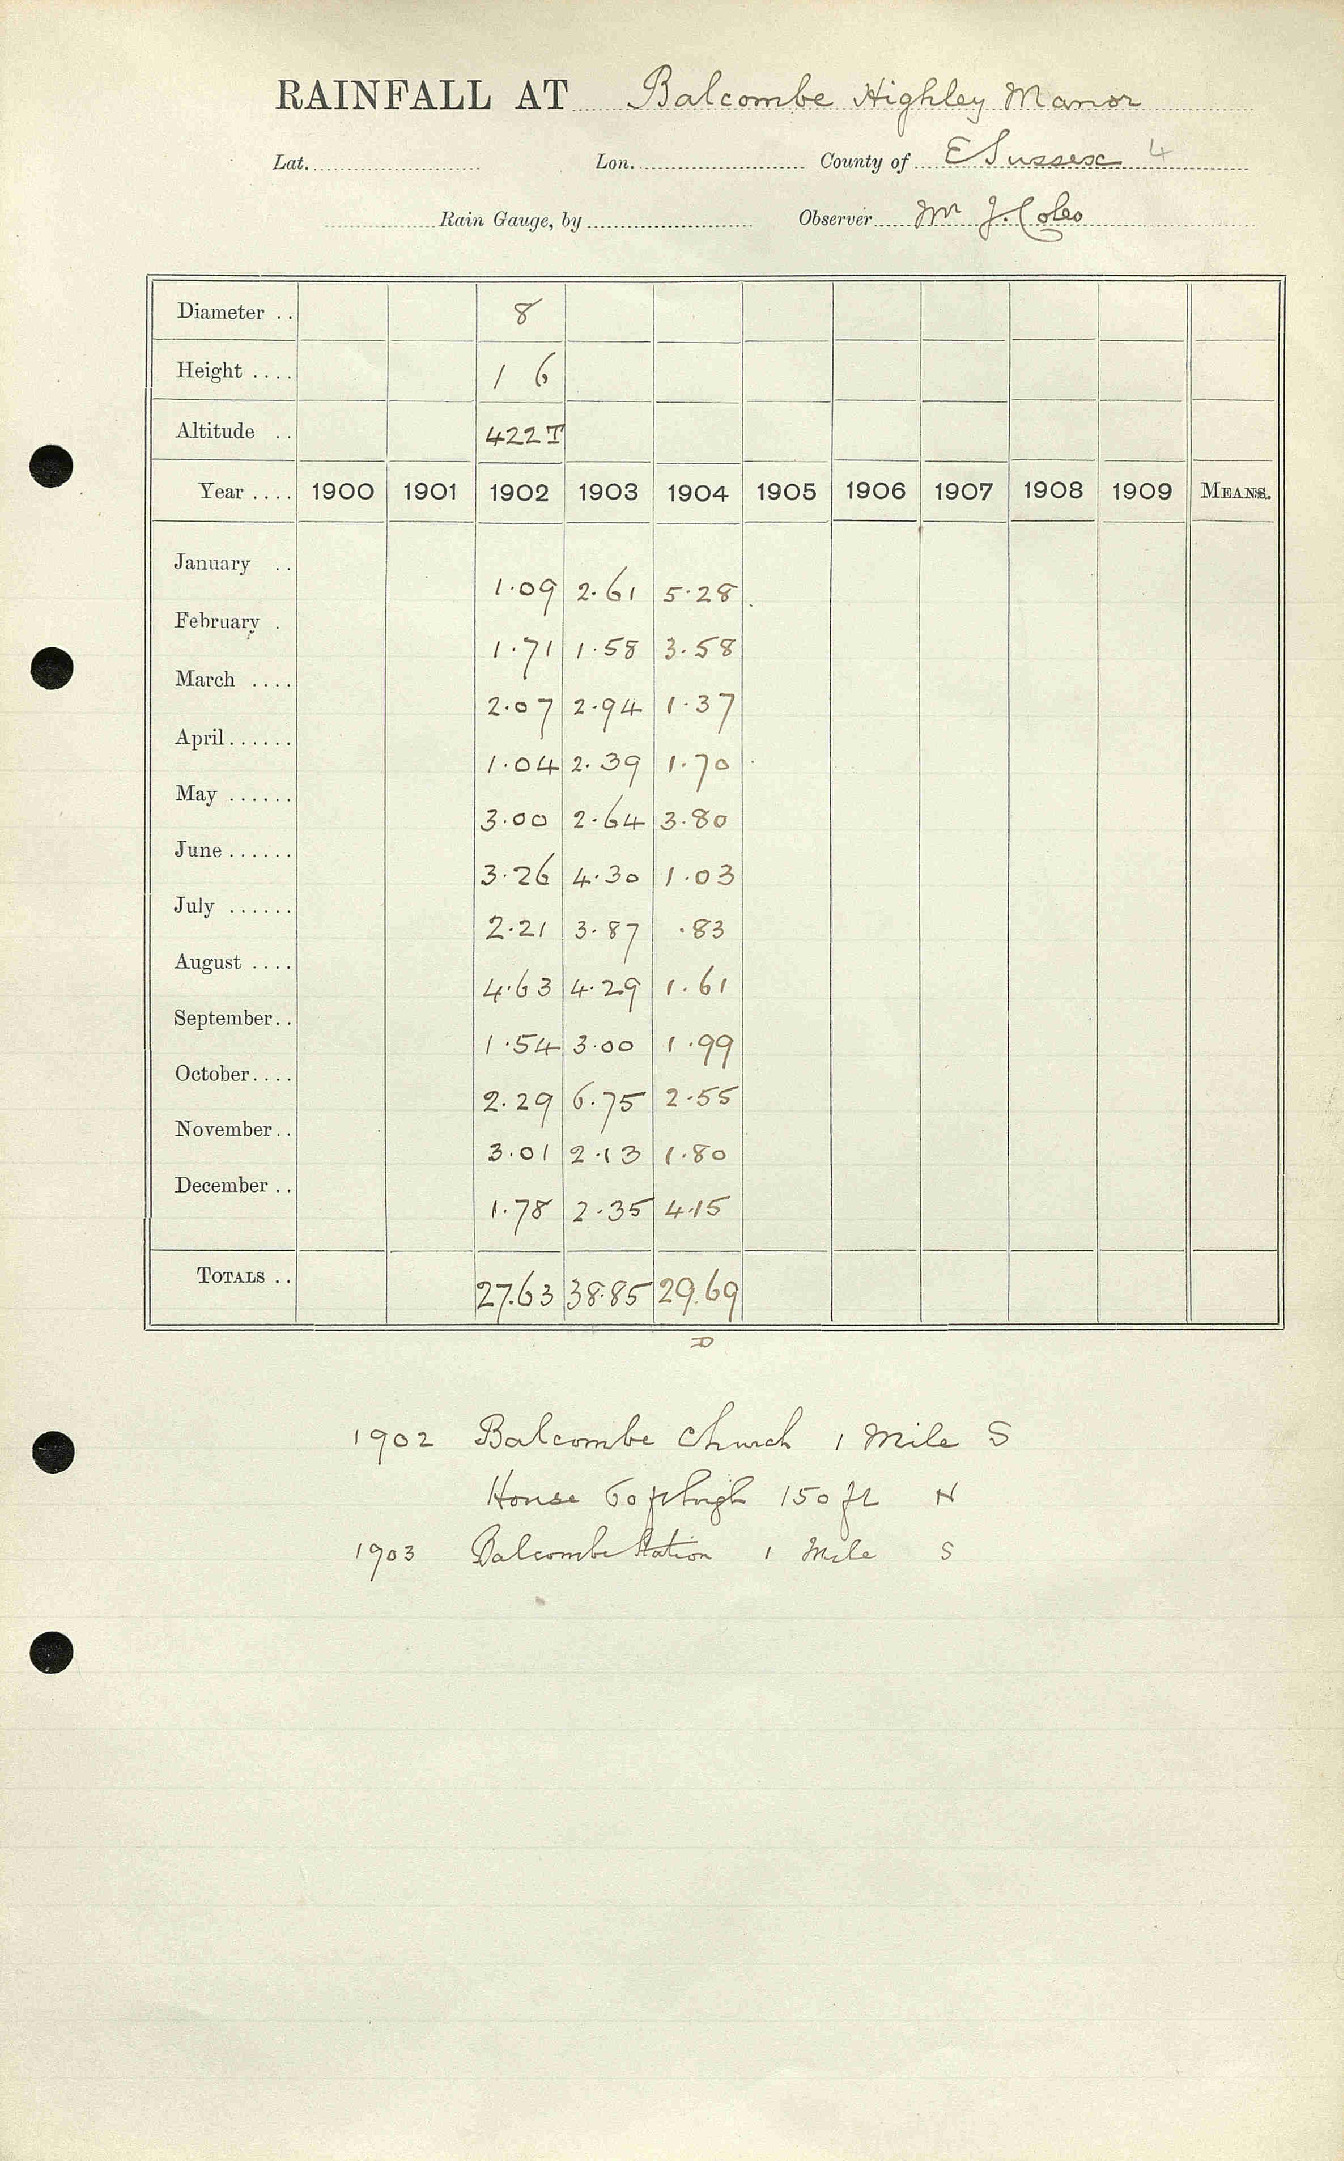 RAINFALL AT Balcombe Highley Manor
Lat. Lon. County of E Sussex 4
Rain Gauge, by Observer Mr J. Coles
Diameter .. 8
Height .... 1 6
Altitude .. 422 T
Year .... 1900 1901 1902 1903 1904 1905 1906 1907 1908 1909 MEANS.
January .. 1.09 2.61 5.28
February . 1.71 1.58 3.58
March .... 2.07 2.94 1.37
April...... 1.04 2.39 1.70
May ...... 3.00 2.64 3.80
June ...... 3.26 4.30 1.03
July ...... 2.21 3.87 .83
August .... 4.63 4.29 1.61
September.. 1.54 3.00 1.99
October.... 2.29 6.75 2.55
November.. 3.01 2.13 1.80
December .. 1.78 2.35 4.15
TOTALS .. 27.63 38.85 29.69
D
1902 Balcombe Church 1 Mile S
House 60 ft high 150 ft N
1903 Balcombe Station 1 Mile S